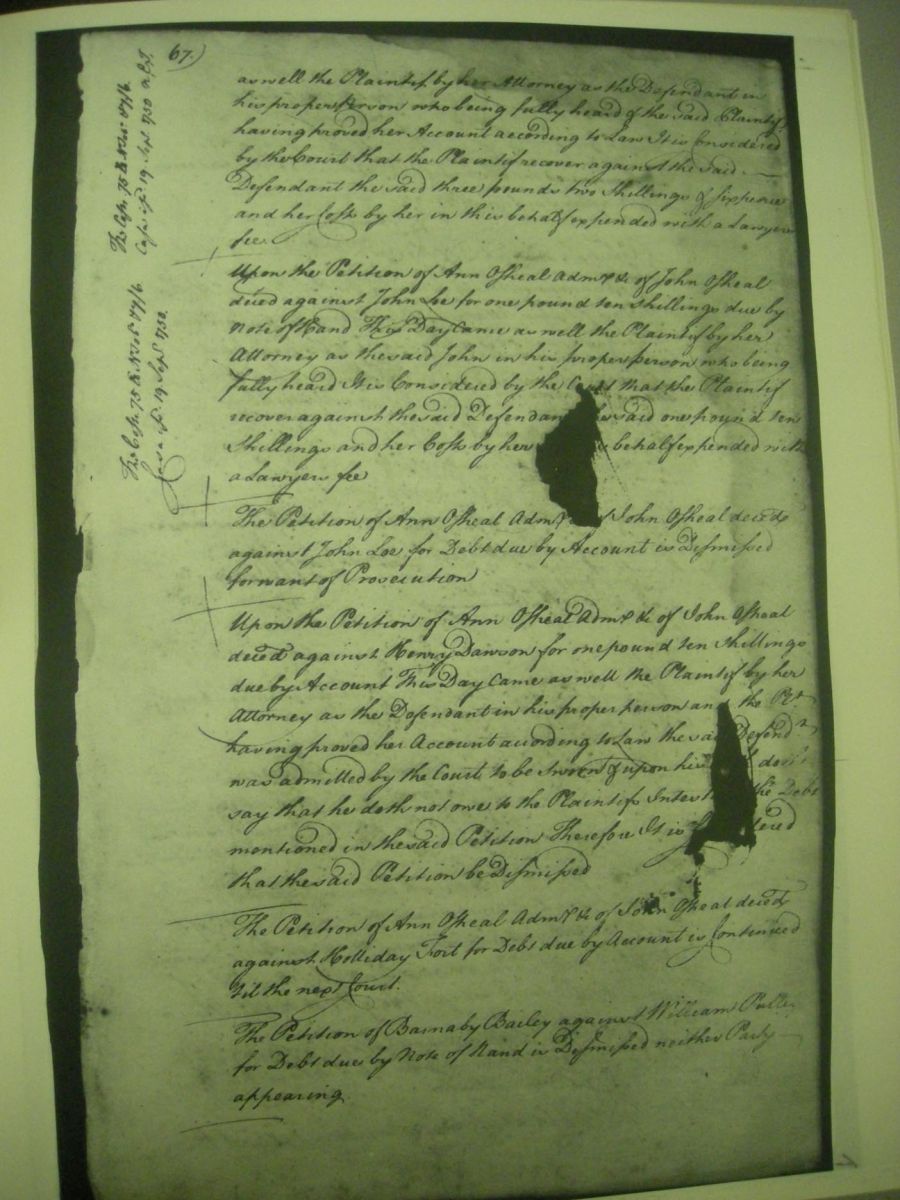 67.)
as well the Plaintif by her Attorney as the Defendant in
his proper person who being fully heard & the said Plaintif
having proved her Account according to Law It is Considered
by the Court that the Plaintif recover against the said
Defendant the said three pounds two Shillings & sixpence
and her Costs by her in this behalf expended with a Lawyers
fee.
Upon the Petition of Ann OSheal Admx &c of John OSheal
deced against John Loe for one pound ten shillings due by
Note of Hand This Day Came as well the Plaintif by her
Attorney as the said John in his proper person who being
fully heard It is Considered by the Court that the Plaintif
recover against the said Defendant the said one pound ten
Shillings and her Costs by her behalf expended with
a Lawyers fee
The Petition of Ann OSheal Admx of John OSheal deced
against John Loe for Debt due by Account is Dismissed
for want of Prosecution
Upon the Petition of Ann OSheal Admx &c of John OSheal
deced against Henry Dawson for one pound ten shillings
due by Account This Day Came as well the Plaintif by her
Attorney as the Defendant in his proper person and the Plt
having proved her Account according to Law the said Defendt
was admitted by the Court to be Sworn & upon his doth
say that he doth not owe to the Plaintifs Intest the Debt
mentioned in the said Petition Therefore It is
that the said Petition be Dismissed
The Petition of Ann OSheal Admx &c of John OSheal deced
against Holliday Fort for Debt due by Account is Continued
til the next Court.
The Petition of Barnaby Bailey against William
for Debt due by Note of Hand is Dismissed neither Party
appearing
19 Sept 1750
19 Sept 1750.